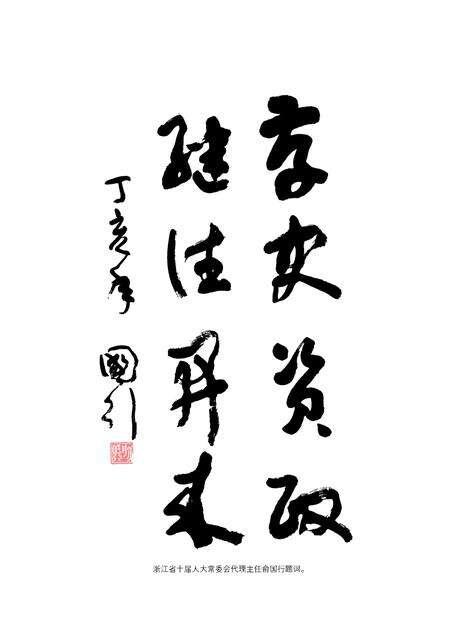 存史资政
继往开来
丁亥年 國行
浙江省十届人大常委会代理主任俞国行题词。